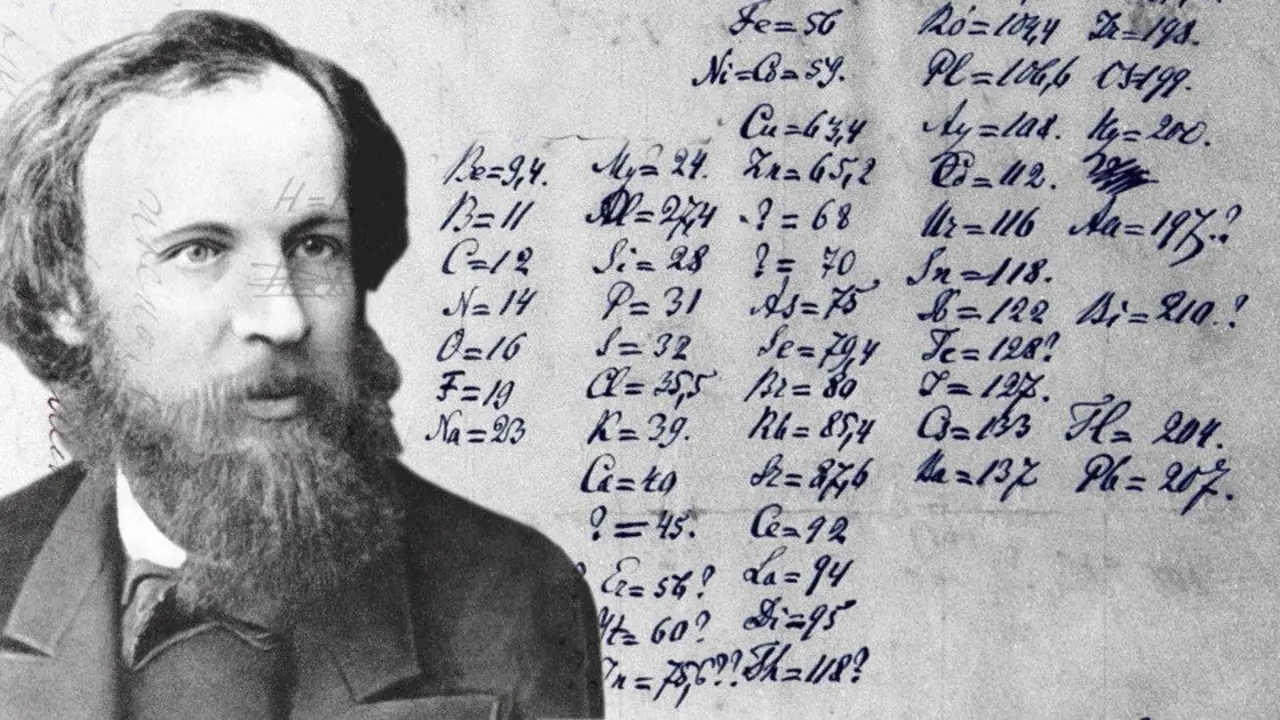 Fe=56 Ro=104,4 Ir=198.
Ni=Co=59. Pl=106,6 Os=199.
Cu=63,4 Ag=108. Hg=200.
Be=9,4. Mg=24. Zn=65,2 Cd=112.
B=11 Al=27,4 ?=68 Ur=116 Au=197?
C=12 Si=28 ?=70 Sn=118.
N=14 P=31 As=75 Sb=122 Bi=210?
O=16 S=32 Se=79,4 Te=128?
F=19 Cl=35,5 Br=80 J=127.
Na=23 K=39. Rb=85,4 Cs=133 Tl=204.
Ca=40 Sr=87,6 Ba=137 Pb=207.
?=45. Ce=92
Er=56? La=94
Yt=60? Di=95
In=75,6?? Th=118?
H=